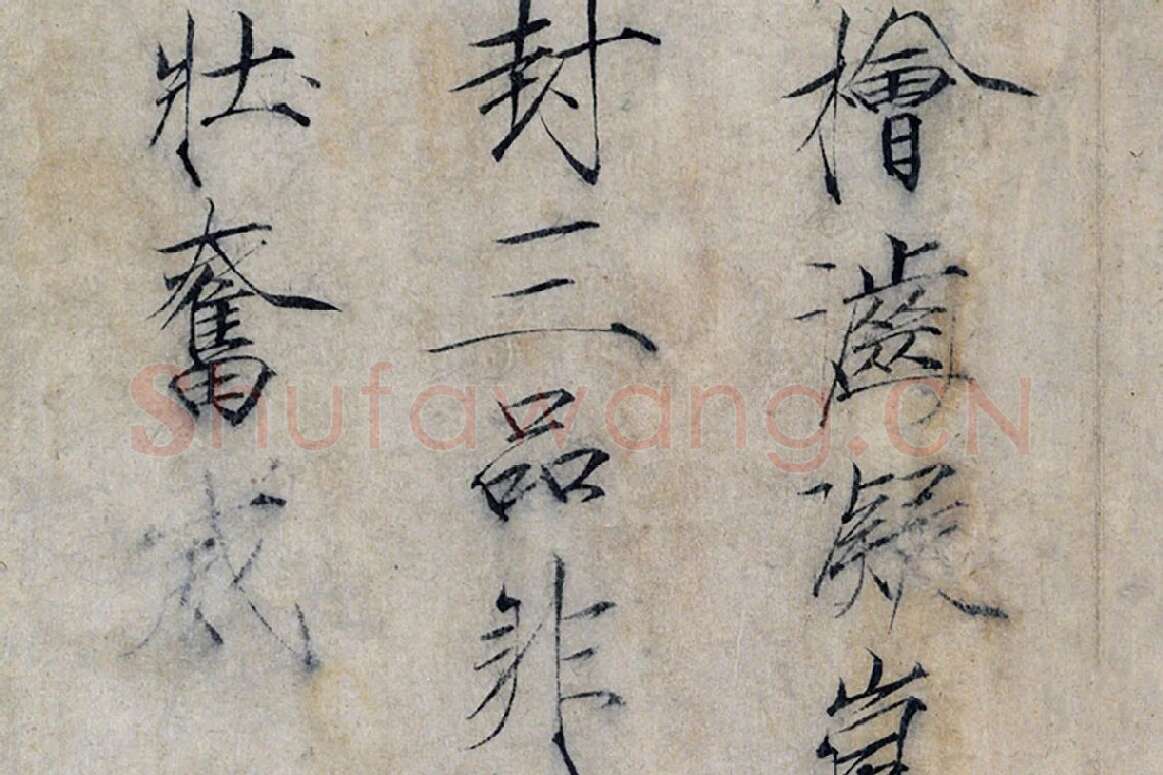 檜凝
封三品非
壯奮
Shufawang.CN